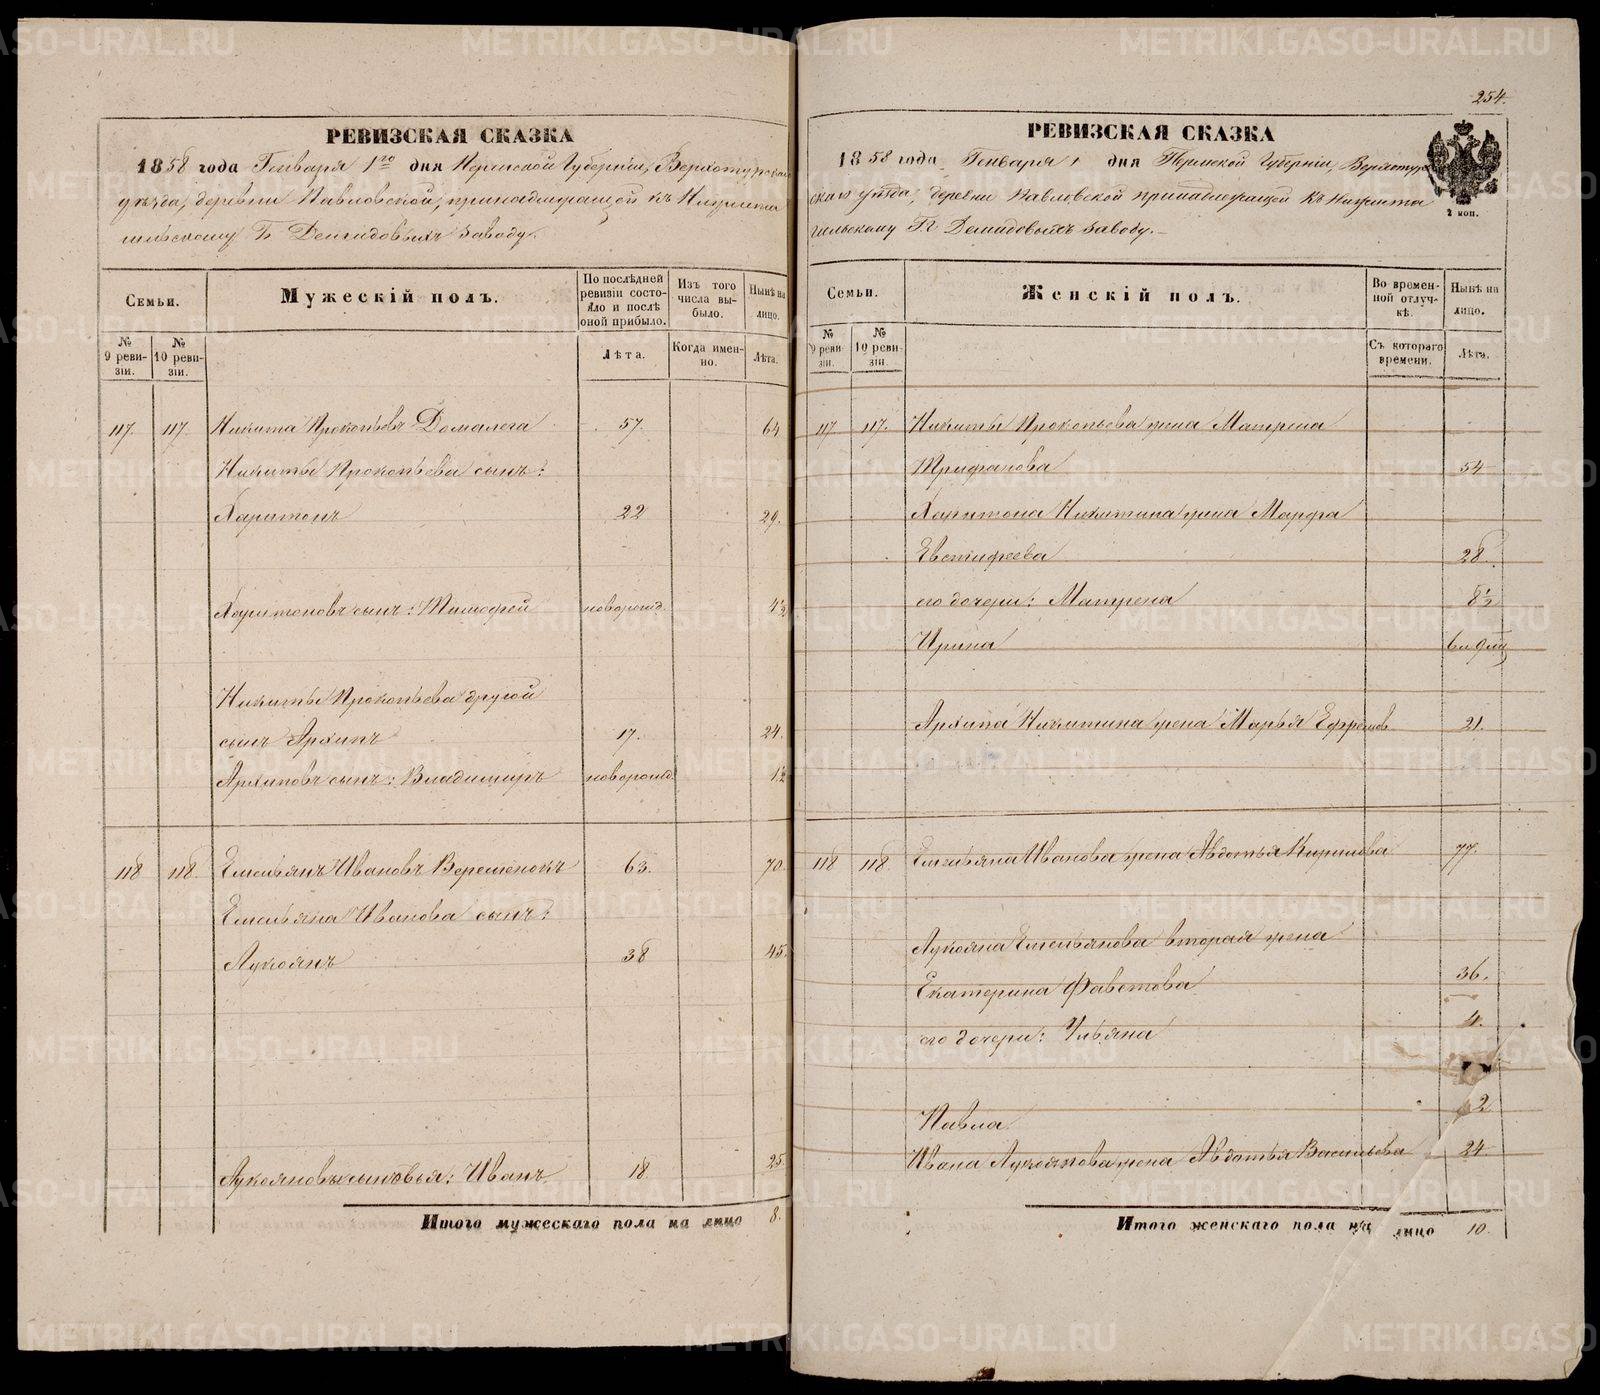 254.
РЕВИЗСКАЯ СКАЗКА
1858 года Генваря 1го дня Пермской Губерніи, Верхотурскаго
уѣзда, деревни Павловской, принадлежащей къ Нижнета
гильскому Гг Демидовыхъ заводу.
Семьи.
Мужескій полъ.
По послѣдней ревизіи состояло и послѣ оной прибыло.
Изъ того числа выбыло.
Нынѣ на лицо.
№ 9 ревизіи.
№ 10 ревизіи.
Лѣта.
Когда именно.
Лѣта.
117. 117. Никита Прокопьевъ Домалега 57. 64
Никиты Прокопьева сынъ:
Харитонъ 22 29.
Харитоновъ сынъ: Тимофей новорожд. 4½
Никиты Прокопьева другой
сынъ Архипъ 17. 24.
Архиповъ сынъ: Владимиръ новорожд. 1½
118 118. Емельянъ Ивановъ Веретенокъ 63. 70.
Емельяна Иванова сынъ:
Лукоянъ 38 45.
Лукояновы сыновья: Иванъ 18. 25.
Итого мужескаго пола на лицо 8.
РЕВИЗСКАЯ СКАЗКА
1858 года Генваря 1 дня Пермской Губерніи, Верхотур
скаго уѣзда, деревни Павловской принадлежащей къ Нижнета
гильскому Гг Демидовыхъ заводу.
2 коп.
Семьи.
Женскій полъ.
Во временной отлучкѣ.
Нынѣ на лицо.
№ 9 ревизіи.
№ 10 ревизіи.
Съ котораго времени.
Лѣта.
117 117. Никиты Прокопьева жена Матрена
Трифанова 54
Харитона Никитина жена Марфа
Евстифеева 28.
его дочери: Матрена 8½
Ирина
Архипа Никитина жена Марья Ефремов. 21.
118 118. Емельяна Иванова жена Авдотья Кирилова 77.
Лукояна Емельянова вторая жена
Екатерина Фавстова 36.
его дочери: Ульяна 4.
Павла 2
Ивана Лукоянова жена Авдотья Васильева 24
Итого женскаго пола на лицо 10.
METRIKI.GASO-URAL.RU